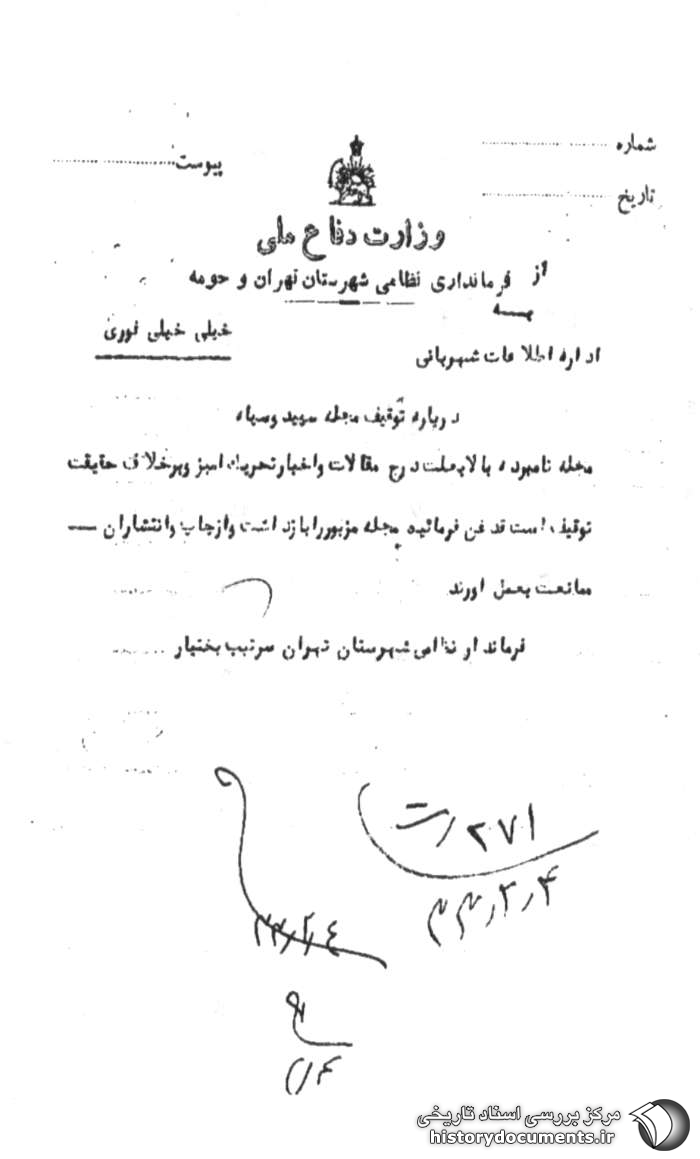 شماره
تاریخ
پیوست
وزارت دفاع ملی
از فرمانداری نظامی شهرستان تهران و حومه
به
اداره اطلاعات شهربانی
خیلی خیلی فوری
درباره توقیف مجله سپید و سیاه
مجله نامبرده بالا بعلت درج مقالات و اخبار تحریک امیز و برخلاف حقیقت
توقیف است قدغن فرمائید مجله مزبور را بازداشت و از چاپ و انتشار ان
ممانعت بعمل اورند
فرماندار نظامی شهرستان تهران سرتیپ بختیار
۲۷۱
۳۳٫۳٫۴
مرکز بررسی اسناد تاریخی
historydocuments.ir